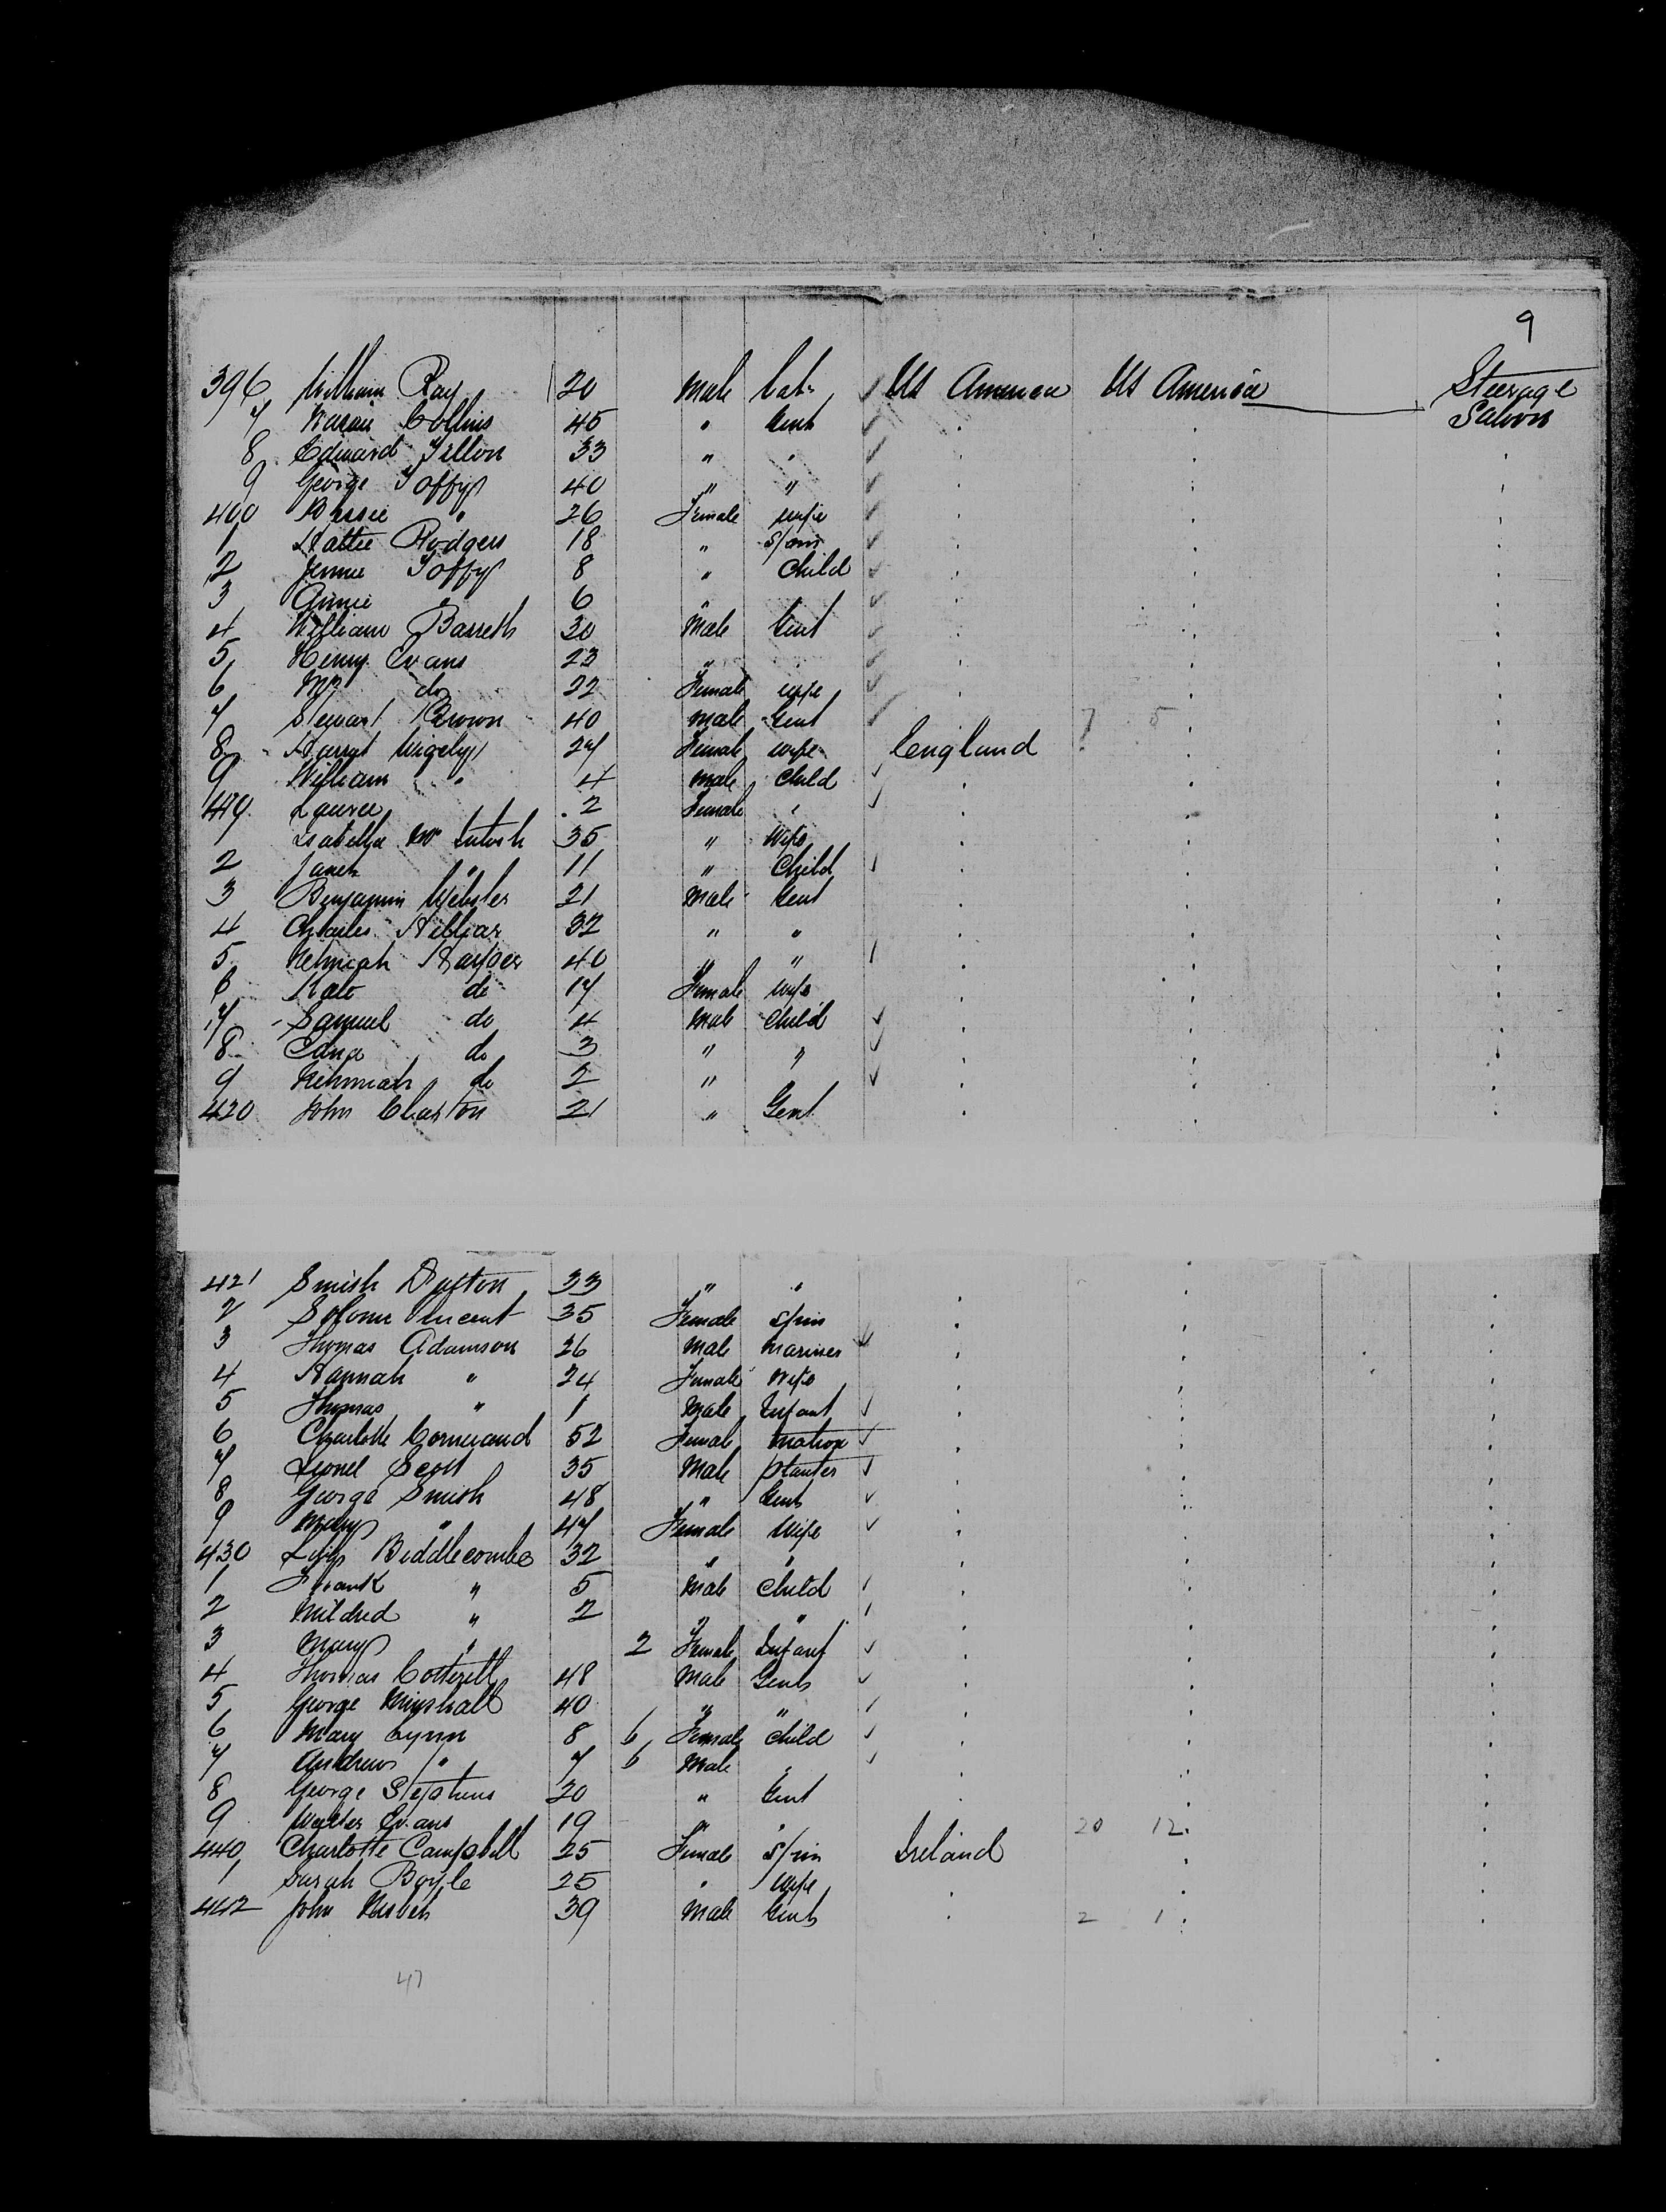 9
396 William Ray 20 Male Lab. ✓ US America US America Steerage
7 Collins 45 " Gent ✓ Saloon
8 Edward 33 " " ✓
9 George Joffy 40 " " ✓
400 Bessie " 26 Female wife ✓
1 Hattie Rodgers 18 " Spin ✓
2 Jennie Joffy 8 " Child ✓
3 Annie " 6 " ✓
4 William Barrett 30 Male Gent ✓
5 Henry Evans 23 " " ✓
6 Mrs do 22 Female wife ✓
7 Stewart Brown 40 Male Gent ✓ 7 5
8 Harriet 27 Female wife England
9 William " 4 Male Child ✓
Laura 2 Female " ✓
1 Isabella McIntosh 35 " Wife
2 Janet " 11 " Child ✓
3 Benjamin Webster 21 Male Gent
4 Charles 32 " "
5 Nehmiah 40 " " ✓
6 Kate do 17 Female Wife
7 Samuel do 4 Male Child ✓
8 Edna do 3 " " ✓
9 Nehmiah do 2 " ✓
420 John 21 " Gent
421 Smith 33 " "
2 Vincent 35 Female Spin
3 Thomas Adamson 26 Male Mariner ✓
4 Hannah " 24 Female Wife
5 Thomas " 1 Male Infant ✓
6 Charlotte 52 Female Matron ✓
7 Lionel Scott 35 Male Planter ✓
8 George Smith 48 " Gent ✓
9 Mary " 47 Female Wife ✓
430 Biddlecombe 32 " "
1 Frank " 5 Male Child ✓
2 Mildred " 2 " " ✓
3 Mary " 2 Female Infant ✓
4 Thomas Cotterell 48 Male Gent ✓
5 George Minshall 40 " " ✓
6 Mary Lynn 8 6 Female Child ✓
7 Andrew " 7 6 Male " ✓
8 George Stephens 20 " Gent
9 Walter Evans 19 " " 20 12
440 Charlotte Campbell 25 Female Spin Ireland
1 Sarah Boyle 25 " Wife
442 John Nisbet 39 Male Gent 2 1
47